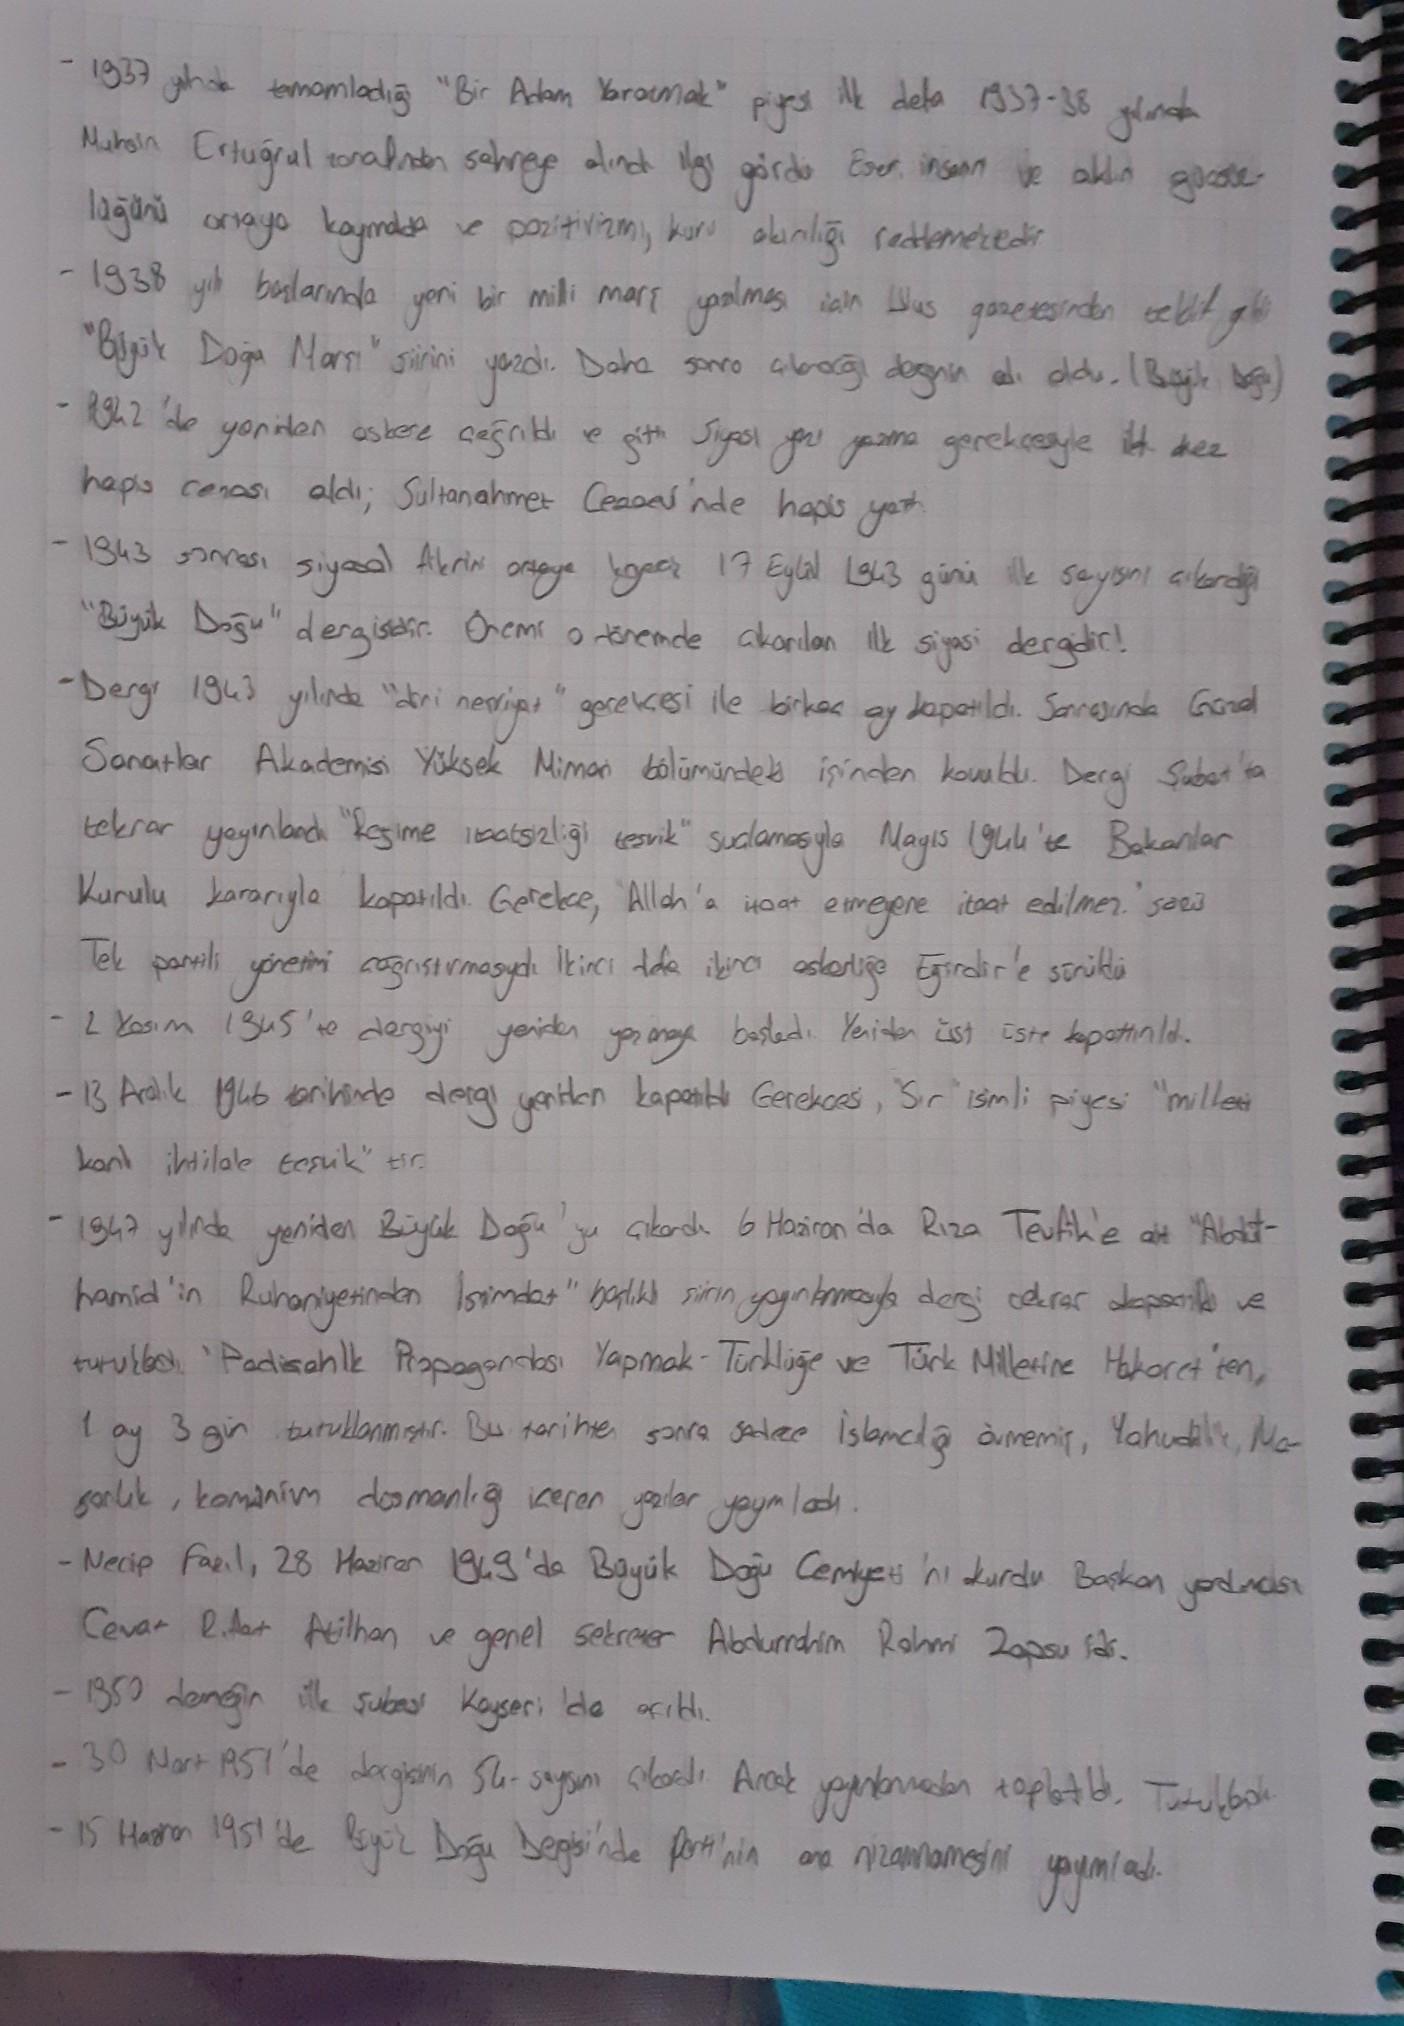 - 1937 yılında tamamladığı "Bir Adam Yaratmak" piyesi ilk defa 1937-38 yılında
Muhsin Ertuğrul tarafından sahneye alındı ilgi gördü Eser, insanın ve aklın güçsüz-
lüğünü ortaya koymakta ve pozitivizmi, kuru akılcılığı reddetmektedir
- 1938 yılı başlarında yeni bir milli marş yazılması için Ulus gazetesinden teklif geldi
"Büyük Doğu Marşı" şiirini yazdı. Daha sonra çıkaracağı derginin adı oldu. (Büyük Doğu)
- 1942'de yeniden askere çağrıldı ve gitti Siyasi yazı yazma gerekçesiyle ilk kez
hapis cezası aldı; Sultanahmet Cezaevi'nde hapis yattı.
- 1943 sonrası siyasal fikrini ortaya 17 Eylül 1943 günü ilk sayısını çıkardığı
"Büyük Doğu" dergisidir. Önemi o dönemde çıkarılan ilk siyasi dergidir!
- Dergi 1943 yılında "dini neşriyat" gerekçesi ile birkaç ay kapatıldı. Sonrasında Güzel
Sanatlar Akademisi Yüksek Mimari bölümündeki işinden kovuldu. Dergi Şubat'ta
tekrar yayınlandı "Rejime itaatsizliği teşvik" suçlamasıyla Mayıs 1944'te Bakanlar
Kurulu kararıyla kapatıldı. Gerekçe, "Allah'a itaat etmeyene itaat edilmez." sözü
Tek partili yönetimi çağrıştırmasıydı İkinci defa ikinci askerliğe Eğirdir'e sürüldü
- 2 Kasım 1945'te dergiyi yeniden yazmaya başladı. Yeniden üst üste kapattırıldı.
- 13 Aralık 1946 tarihinde dergi yeniden kapatıldı Gerekçesi, "Sır" isimli piyesi "milleti
kanlı ihtilale teşvik" tir.
- 1947 yılında yeniden Büyük Doğu'yu çıkardı. 6 Haziran'da Rıza Tevfik'e ait "Abdül-
hamid'in Ruhaniyetinden İstimdat" başlıklı şiirin yayınlanmasıyla dergi tekrar kapatıldı ve
tutuklandı. 'Padişahlık Propagandası Yapmak - Türklüğe ve Türk Milletine Hakaret'ten,
1 ay 3 gün tutuklanmıştır. Bu tarihten sonra sadece İslamcılığı övmemiş, Yahudilik, Ma-
sonluk, komünizm düşmanlığı içeren yazılar yayımladı.
- Necip Fazıl, 28 Haziran 1949'da Büyük Doğu Cemiyeti'ni kurdu Başkan yardımcısı
Cevat Rıfat Atilhan ve genel sekreter Abdurrahim Rahmi Zapsu idi.
- 1950 derneğin ilk şubesi Kayseri'de açıldı.
- 30 Mart 1951'de dergisinin 54. sayısını çıkardı. Ancak yayınlanmadan toplatıldı. Tutuklandı.
- 15 Haziran 1951'de Büyük Doğu Dergisi'nde Parti'nin ana nizamnamesini yayımladı.